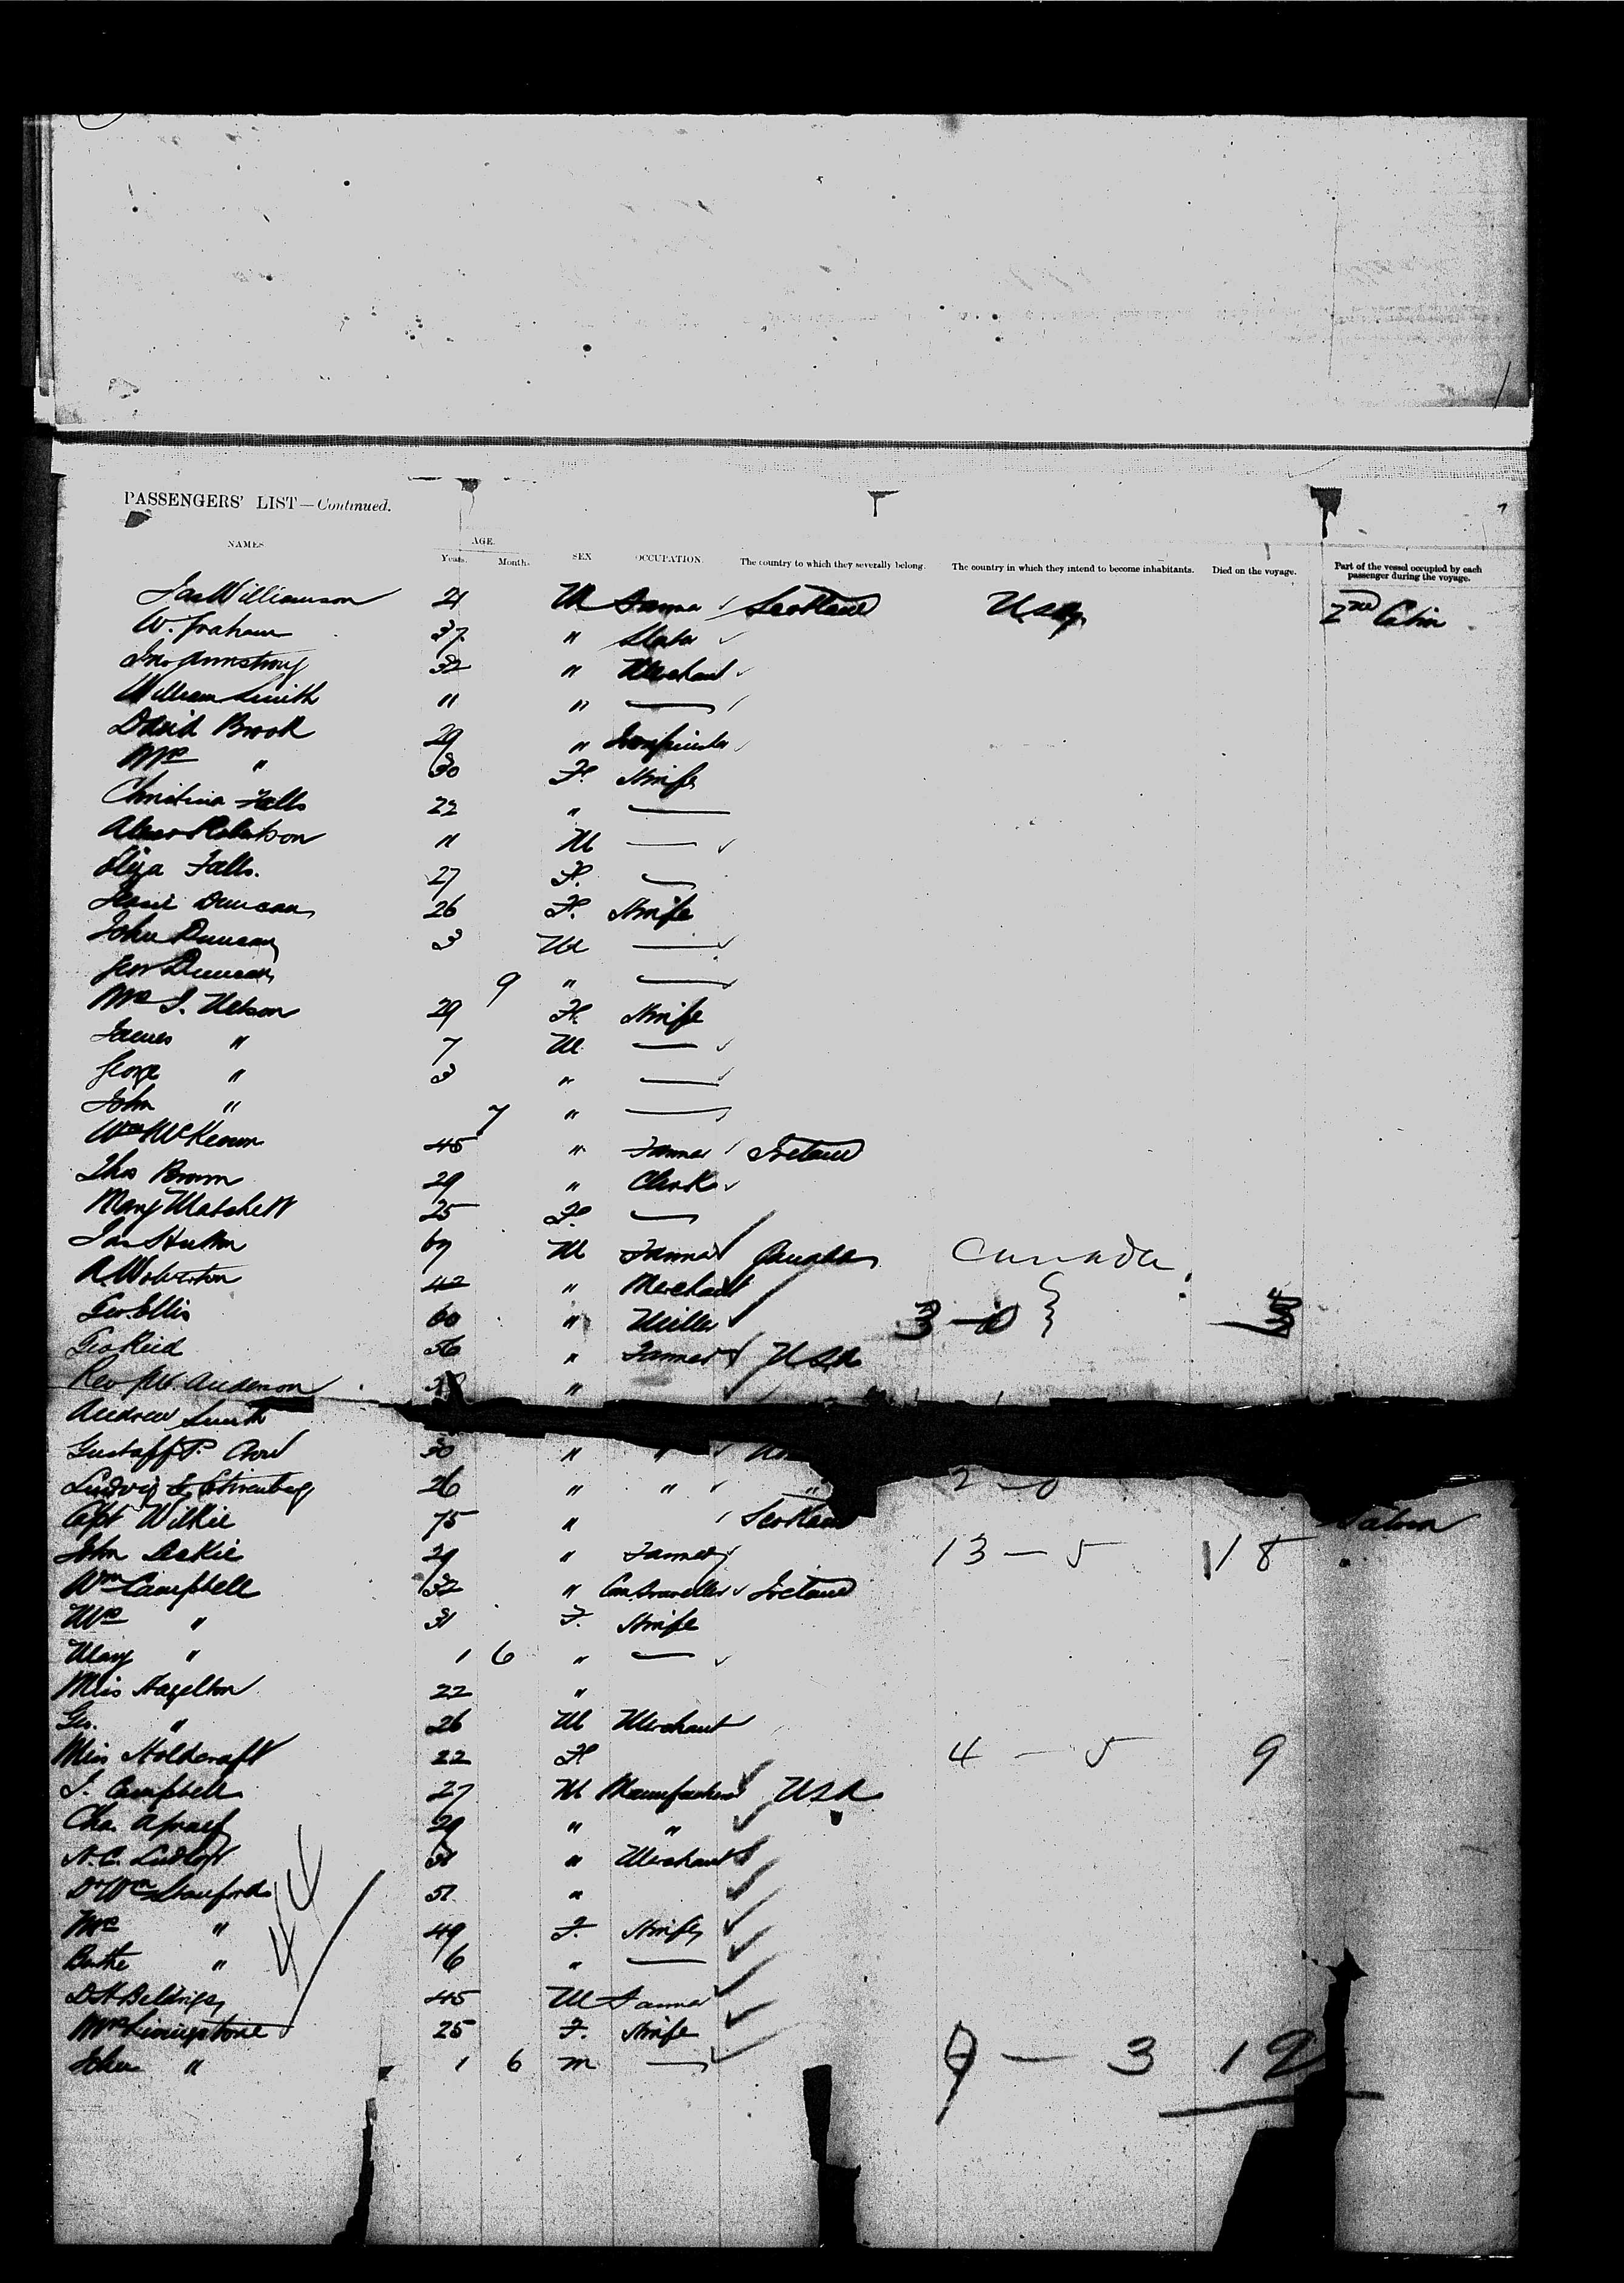 PASSENGERS' LIST—Continued.
NAMES AGE. Years. Months. SEX OCCUPATION. The country to which they severally belong. The country in which they intend to become inhabitants. Died on the voyage. Part of the vessel occupied by each passenger during the voyage.
Jas Williamson 21 M Farmer Scotland USA 2nd Cabin
W. Graham 37 " Slater
Jno Armstrong 32 " Merchant
William Smith 11 " —
David Brook 29 "
Mrs " 30 F. Wife
Christina Falls 22 " —
Robertson 11 M —
Eliza Falls. 27 F. —
Jessie Duncan 26 F. Wife
John Duncan 3 M —
Geo Duncan 9 " —
Mrs J. Nelson 29 F. Wife
James " 7 M —
George " 3 " —
John " 7 " —
Wm McKeown 45 " Farmer Ireland
Thos Brown 29 " Clerk
Mary Matchett 25 F. —
Jas Hutton M Farmer Canada Canada
42 " Merchant
Geo. Ellis 60 " Miller 3 — 0
Geo Reid 56 " Farmer USA
Rev Anderson "
Andrew Smith
Gustaff P. 30 " "
Ludvig 26 " " " 2 — 0
Capt Wilkie 75 " Scotland Saloon
John Leckie 29 " Farmer 13 — 5 18
Wm Campbell 32 " Com Traveller Ireland
Mrs " 31 F. Wife
May " 1 6 " —
Miss Hazelton 22 "
Geo. " 26 M Merchant
Miss Holdcraft 22 F 4 — 5 9
J. Campbell 27 M Manufacturer USA
Chas. 29 " "
A.C. " Merchant
Dr Wm Stanford 51 "
Mrs " 49 F. Wife
" 6 " —
45 M Farmer
Mrs Livingstone 25 F. Wife
John " 1 6 m — 9 — 3 12
44